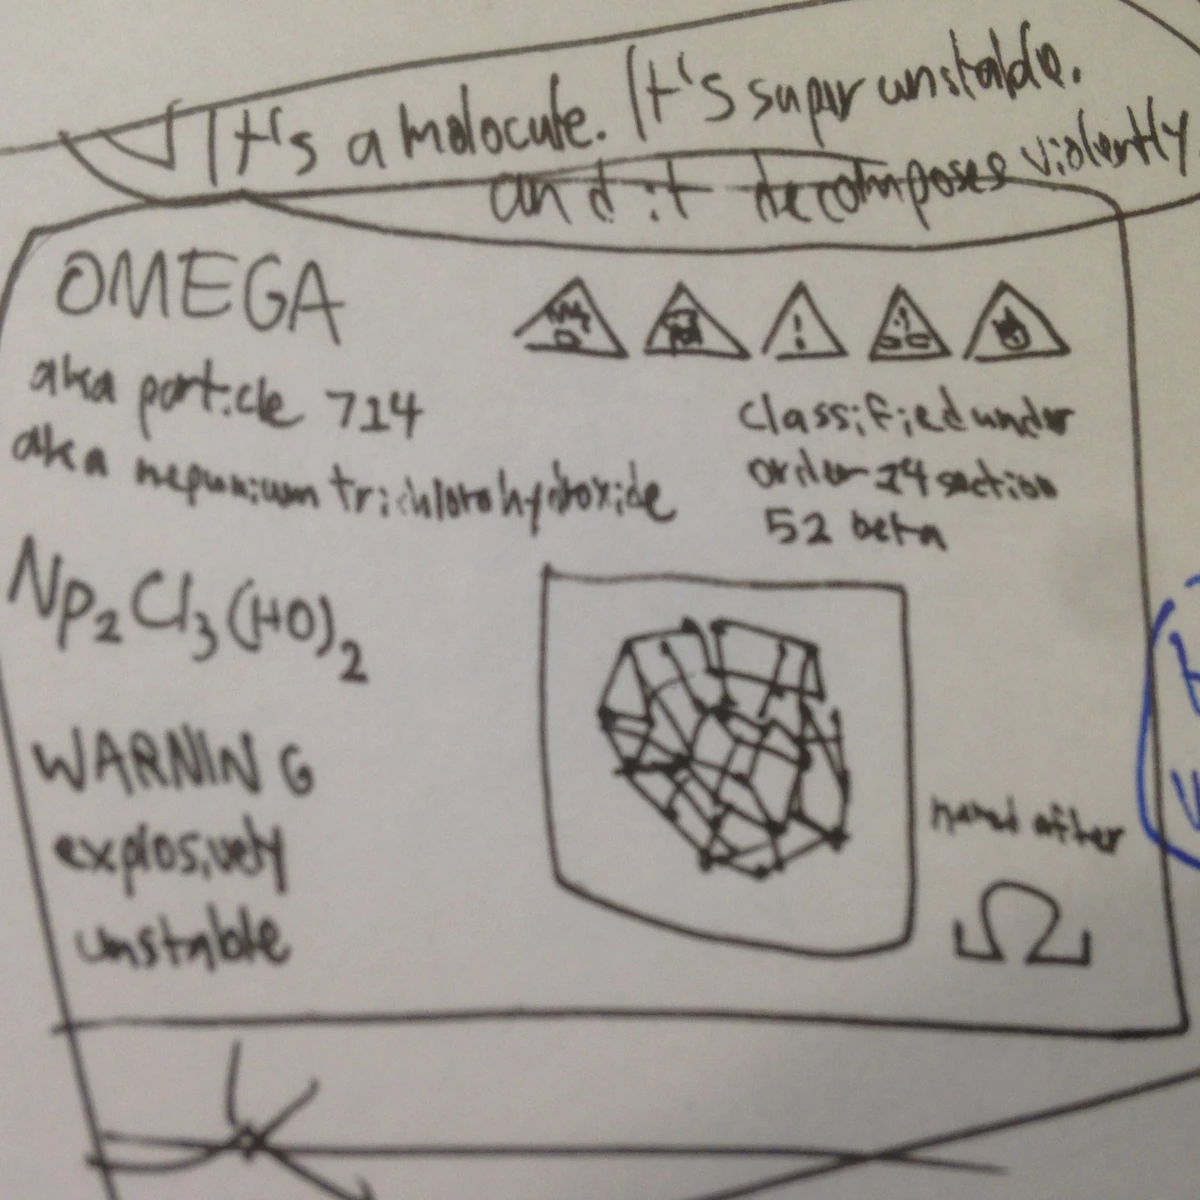 It's a molocule. It's super unstable.
and it decomposes violently
OMEGA
!
aka particle 714
aka nepunium trichlorohydroxide
classified under
order 24 section
52 beta
Np₂Cl₃(HO)₂
WARNING
explosively
unstable
named after
Ω